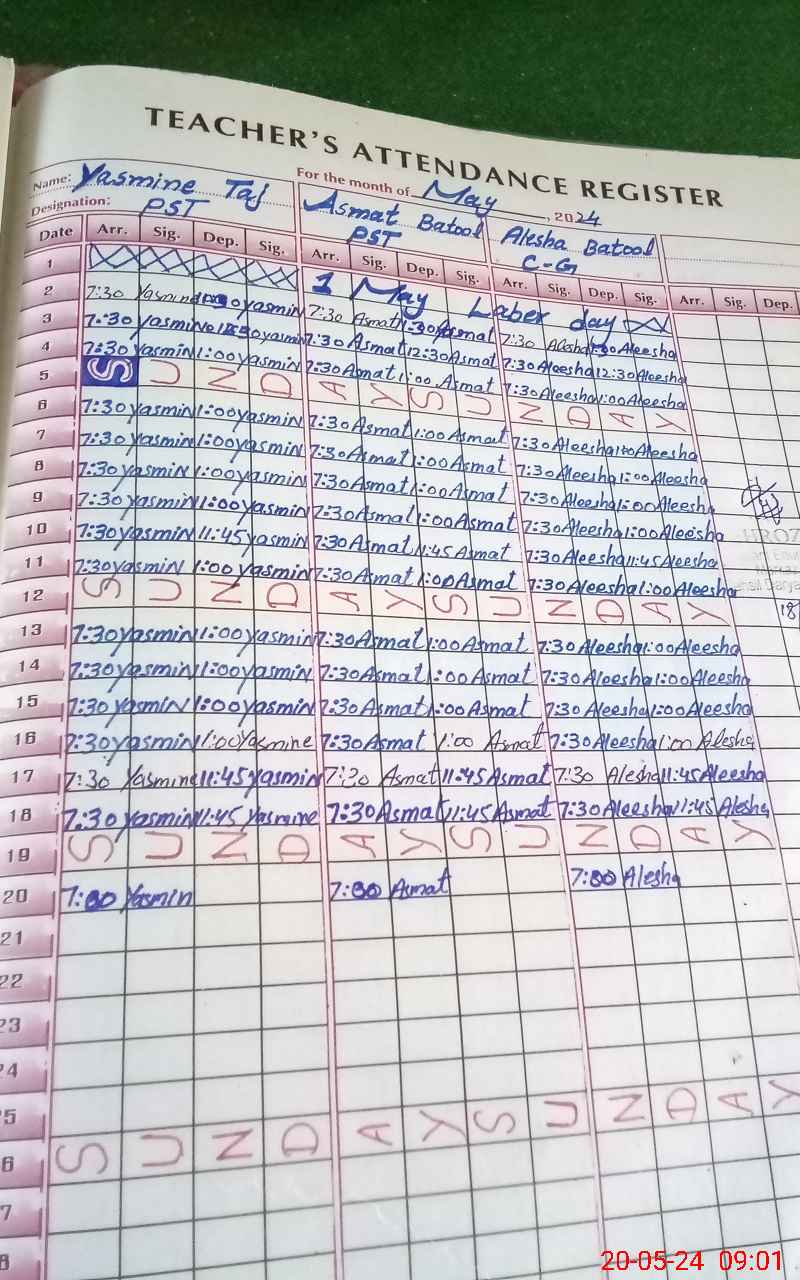 TEACHER'S ATTENDANCE REGISTER
Name: Yasmine Taj For the month of May, 2024
Designation: PST Asmat Batool PST Alesha Batool C-G
Date Arr. Sig. Dep. Sig. Arr. Sig. Dep. Sig. Arr. Sig. Dep. Sig. Arr. Sig. Dep.
1 1 May Laber day
2 7:30 Yasmine yasmin 7:30 Asmat 1:30 Asmal 7:30 Alesha Aleesha
3 7:30 Yasmin yasmin 7:30 Asmat 12:30 Asmat 7:30 Aleesha 12:30 Aleesha
4 7:30 Yasmin 1:00 yasmin 7:30 Asmat 1:00 Asmat 7:30 Aleesha 1:00 Aleesha
5 S U N D A Y S U N D A Y
6 7:30 yasmin 1:00 yasmin 7:30 Asmat 1:00 Asmat 7:30 Aleesha Aleesha
7 7:30 yasmin 1:00 yasmin 7:30 Asmat 1:00 Asmat 7:30 Aleesha 1:00 Aleesha
8 7:30 yasmin 1:00 yasmin 7:30 Asmat 1:00 Asmat 7:30 Aleesha 1:00 Aleesha
9 7:30 yasmin 1:00 yasmin 7:30 Asmat 1:00 Asmat 7:30 Aleesha 1:00 Aleeisha
10 7:30 yasmin 11:45 yasmin 7:30 Asmat 11:45 Asmat 7:30 Aleesha 11:45 Aleesha
11 7:30 yasmin 1:00 yasmin 7:30 Asmat 1:00 Asmat 7:30 Aleesha 1:00 Aleesha
12 S U N D A Y S U N D A Y
13 7:30 yasmin 1:00 yasmin 7:30 Asmat 1:00 Asmat 7:30 Aleesha 1:00 Aleesha
14 7:30 yasmin 1:00 yasmin 7:30 Asmat 1:00 Asmat 7:30 Aleesha 1:00 Aleesha
15 7:30 yasmin 1:00 yasmin 7:30 Asmat 1:00 Asmat 7:30 Aleesha 1:00 Aleesha
16 7:30 yasmin 1:00 Yasmine 7:30 Asmat 1:00 Asmat 7:30 Aleesha 1:00 Alesha
17 7:30 Yasmine 11:45 yasmin 7:30 Asmat 11:45 Asmat 7:30 Alesha 11:45 Aleesha
18 7:30 yasmin 11:45 Yasmine 7:30 Asmat 11:45 Asmat 7:30 Aleesha 11:45 Alesha
19 S U N D A Y S U N D A Y
20 7:00 Yasmin 7:00 Asmat 7:00 Alesha
21
22
23
24
25
26 S U N D A Y S U N D A Y
20-05-24 09:01